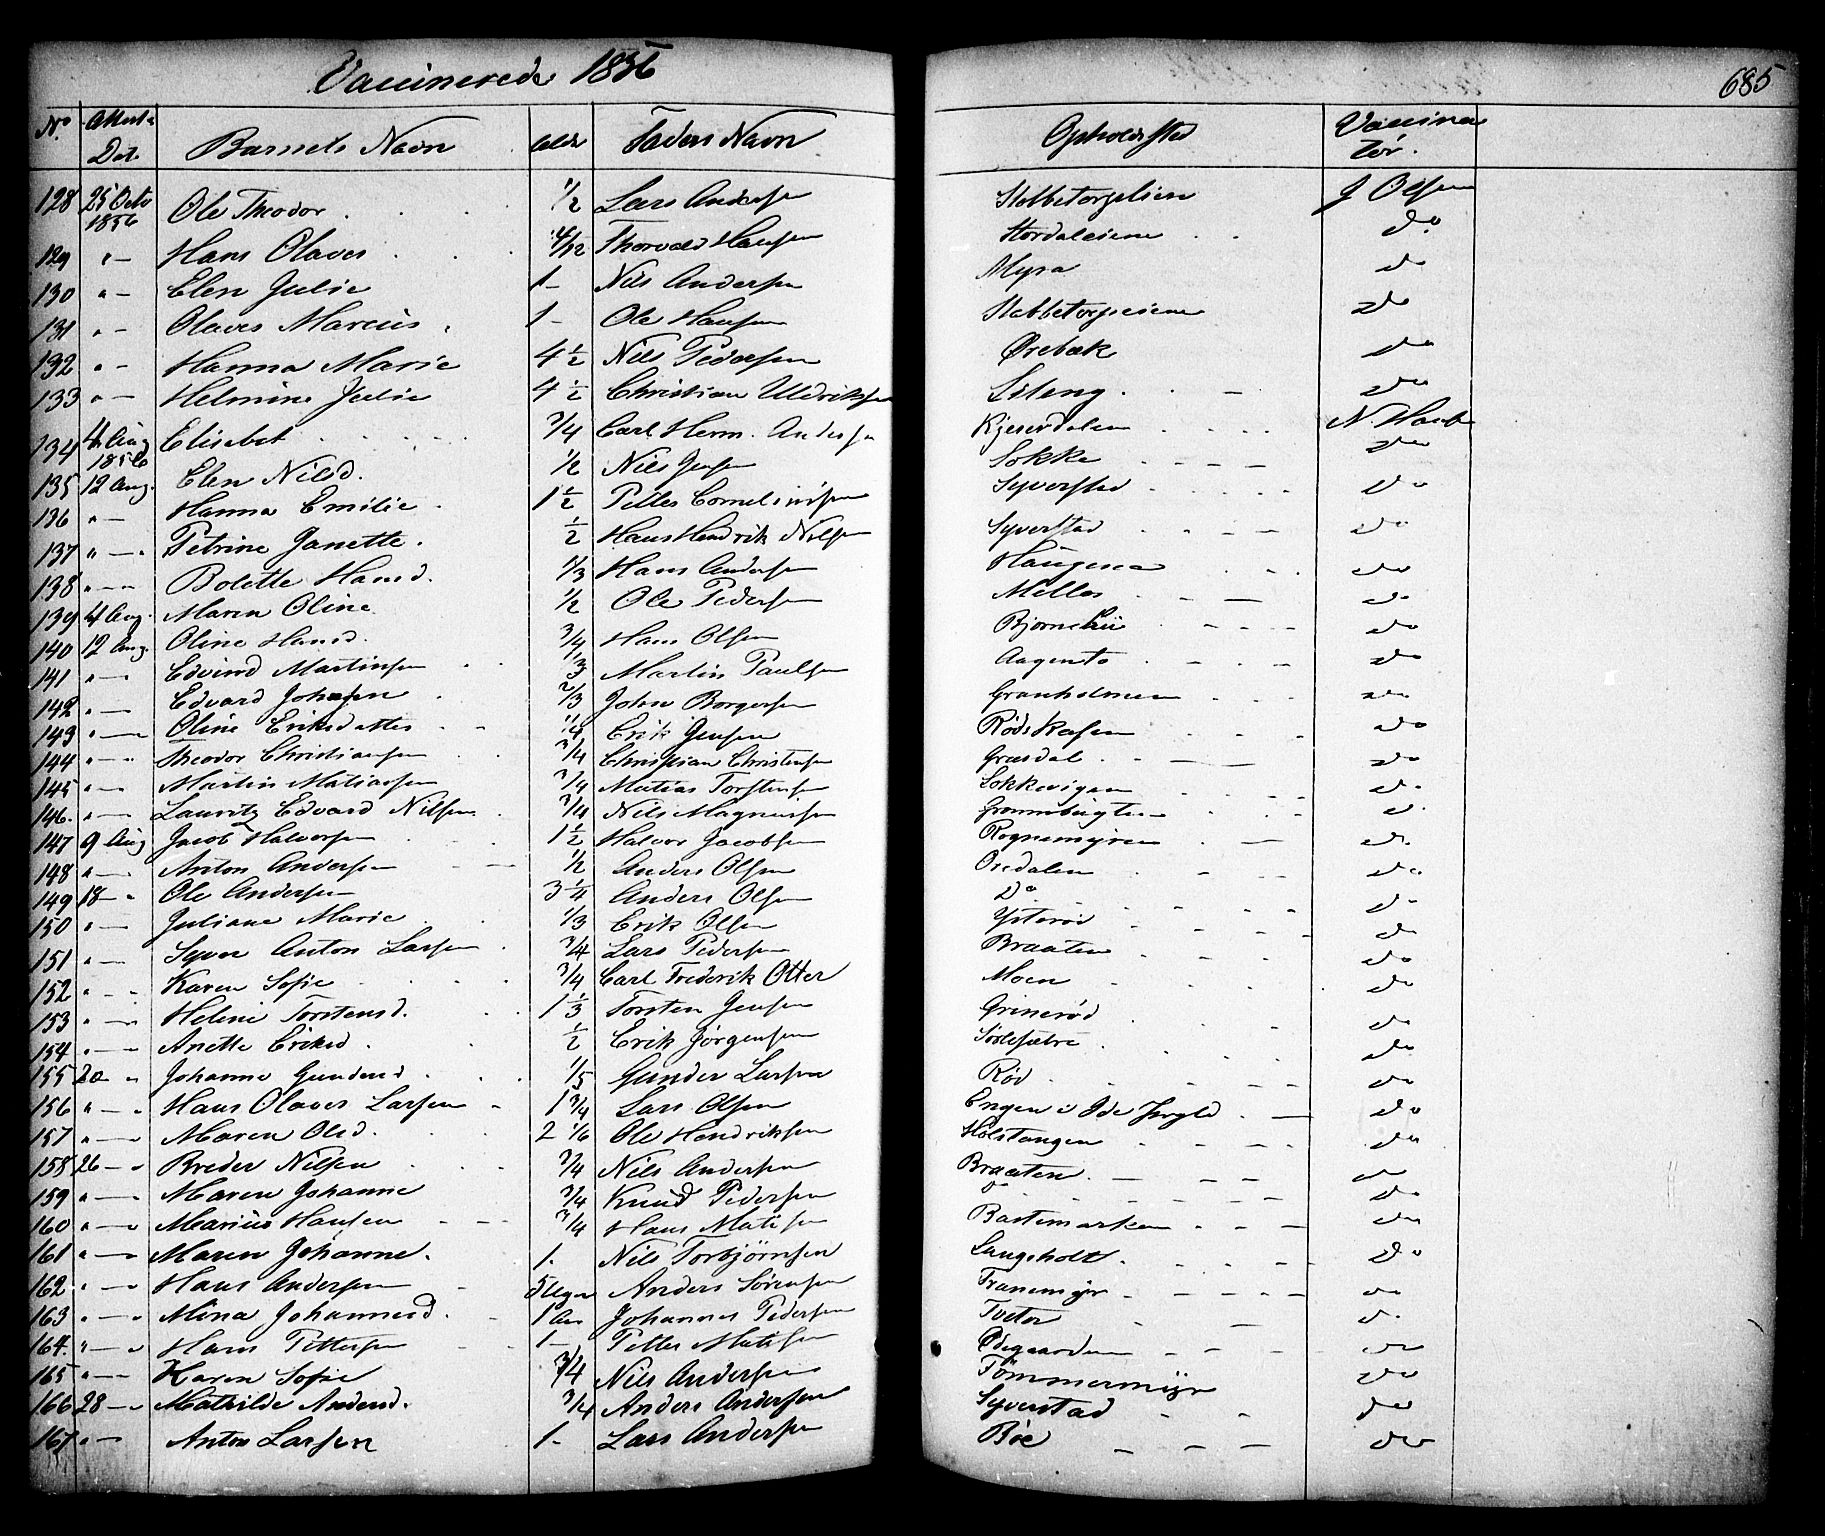 Vaccinerede 1856
685
No Attest Dat. Barnets Navn Alder Faders Navn Opholdssted Vaccinatør.
128 25 Octo 1856 Ole Theodor 1/2 Lars Andersen J Olsen
129 " Hans Olaves 4/12 Thorvald Hansen Stordaleiene do
130 " Elen Julie 1 Nils Andersen Myra do
131 " Olaves Marcus 1 Ole Hansen Stabbetorpeiene do
132 " Hanna Marie 4 1/2 Nils Pedersen Ørebæk do
133 " Helmine Julie 4 1/2 Christian Uldriksen Lileng do
134 4 Aug 1856 Elisabet 3/4 Carl Herm. Andersen Kjeserdalen N. Hoeb
135 12 Aug. Elen Nilsd. 1/2 Nils Jensen Lokke do
136 " Hanna Emilie 1 1/2 Petter Corneliusen Syverstad do
137 " Petrine Janette. 1/2 Hans Hendrik Nilsen Syverstad do
138 " Bolette Hansd. 1/3 Hans Andersen Haugene do
139 4 Aug. Maren Oline 1/2 Ole Pedersen Mellos do
140 12 Aug. Oline Hansd. 3/4 Hans Olsen do
141 " Edvind Martinsen 1/3 Martin Paulsen do
142 " Edvard Johnsen 2/3 John Borgersen Granholmen do
143 " Oline Eriksdatter 1/4 Erik Jensen do
144 " Theodor Christiansen 3/4 Christian Christensen Græsdal do
145 " Martin Matiassen 3/4 Matias Torstensen Lokkevigen do
146. " Lauritz Edvard Nilsen 3/4 Nils Magnussen d.
147 9 Aug Jacob Halvorsen 1 1/2 Halvor Jacobsen Rognemyren do
148 " Anton Andersen 1/2 Anders Olsen Oredalen do
149 18 Ole Andersen 3 1/4 Anders Olsen Do do
150 " Juliane Marie 1/3 Erik Olsen Ysterød do
151 " Syver Anton Larsen 3/4 Lars Pedersen Braaten do
152 " Karen Sofie 3/4 Carl Frederik Otter Moen do
153 " Helene Torstensd. 1 1/3 Torsten Jensen Grinerød do
154 " Anette Eriksd 1/2 Erik Jørgensen do
155 20 " Johanne Gundersd 1/5 Gunder Larsen Rød do
156 " Hans Olaves Larsen 1 3/4 Lars Olsen Engen i Ide do
157 " Maren Olsd. 2 1/6 Ole Hendriksen Holstangen do
158 26 Breder Nilsen 3/4 Nils Andersen Braaten do
159 " Maren Johanne 3/4 Knud Pedersen do do
160 " Marius Hansen 3/4 Hans Matisen Bastemarken do
161 " Maren Johanne. 1. Nils Torbjørnsen Langeholt do
162 " Hans Andersen 5 Uger Anders Sørensen Tranemyr do
163 " Mina Johannesd. 1 Aar Johannes Pedersen Tveter d.
164. " Hans Pettersen 1 Petter Matisen Ødegaarden do
165 " Karen Sofie 3/4 Nils Andersen Tömmermyr do
166 28 Mathilde Andersd. 3/4 Anders Andersen Syverstad do
167 " Anton Larsen 1. Lars Andersen Böe do